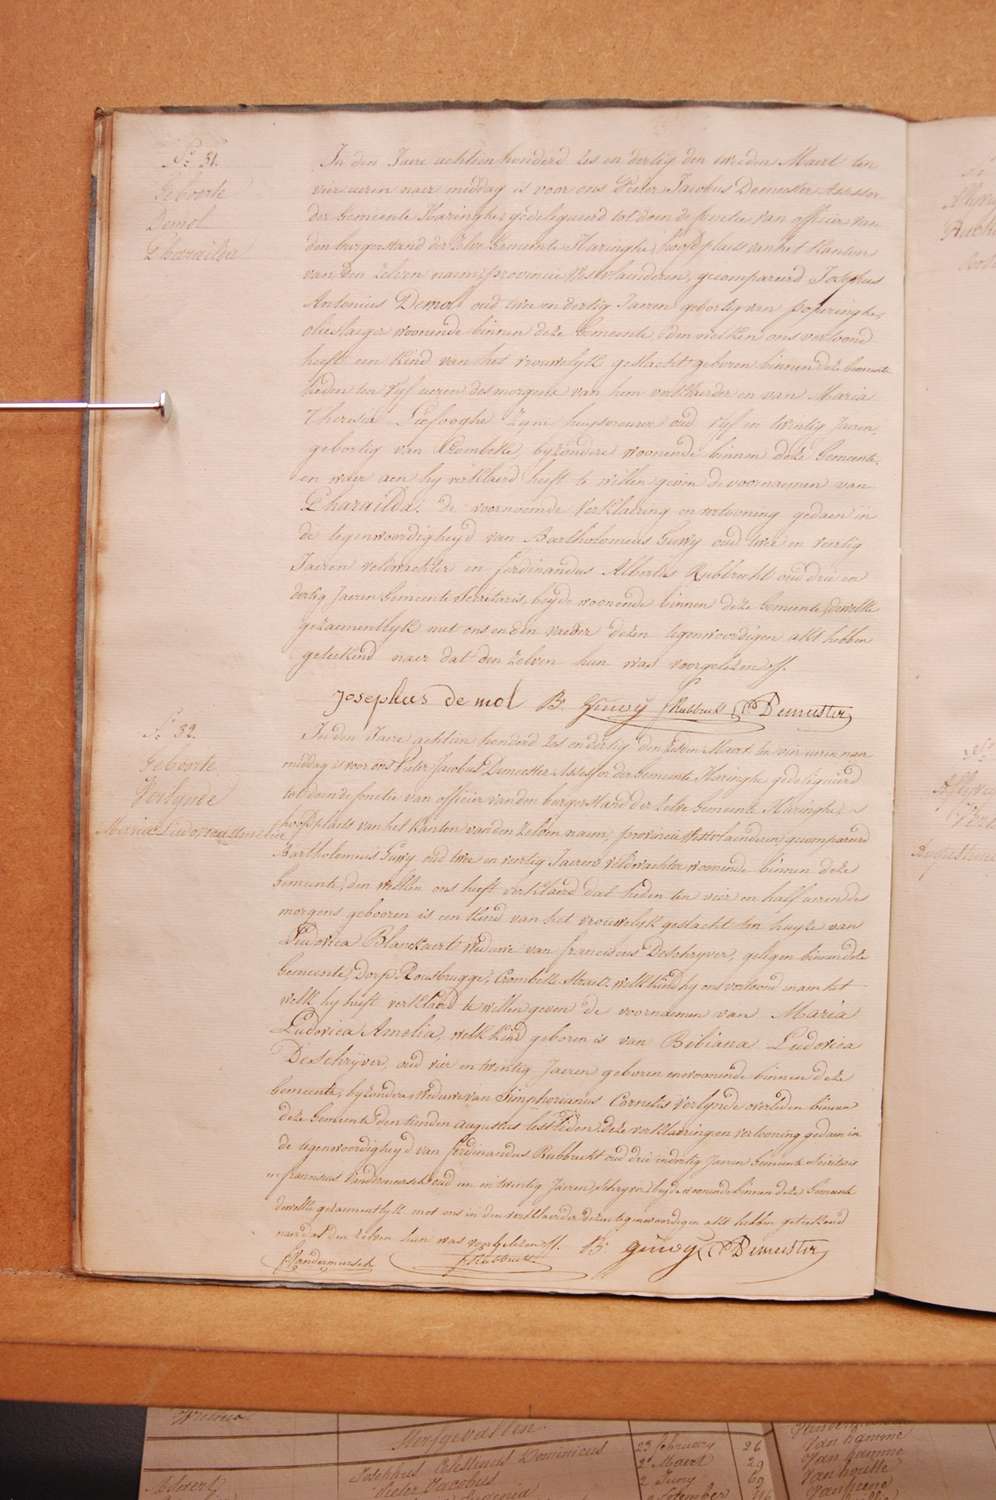 N.º 31.
Geboorte
Demol
Pharailde
In den Jaere achtien honderd zes en dertig den tweeden Maert ten
vier ueren naer middag is voor ons Pieter Jacobus Demeester Assessor
der Gemeente Haringhe gedelegueerd tot doen de functie van officier van
den burgerstand der zelve Gemeente Haringhe, hoofdplaets van het Kanton
van den zelven naem, provincie Westvlaenderen, gecompareerd Josephus
Antonius Demol oud twee en dertig Jaeren geboortig van Poperinghe,
olieslaeger woonende binnen deze Gemeente, den welken ons vertoond
heeft een kind van het vrouwelyk geslacht geboren binnen deze Gemeente
heden ten vyf ueren des morgens van hem verklaerder en van Maria
Theresia Liefooghe zyne huysvrouwe oud vyf en twintig Jaeren,
geboortig van Crombeke, byzondere woonende binnen deze Gemeente,
en waer aen hy verklaerd heeft te willen geven de voornaemen van
Pharailda. de voornoemde verklaering en vertooning gedaen in
de tegenwoordigheyd van Bartholomeus Guwy oud twee en veertig
Jaeren veldwachter en ferdinandus Albertus Rubbrecht oud drie en
dertig Jaeren Gemeente secretaris, beyde woonende binnen deze Gemeente, dewelke
gezaementlyk met ons en den vader dezen tegenwoordigen akt hebben
geteekend naer dat den zelven hun was voorgelezen ./.
Josephus de mol B. Guwy f Rubbrecht P Demeester
N.º 32.
Geboorte
Verlynde
Maria Ludovica Amelia
In den Jaere achtien honderd zes en dertig den Maert ten vier ueren naer
middag is voor ons Pieter Jacobus Demeester Assessor der Gemeente Haringhe gedelegueerd
tot doen de functie van officier van den burgerstand der zelve Gemeente Haringhe,
hoofdplaets van het Kanton van den zelven naem, provincie Westvlaenderen, gecompareerd
Bartholomeus Guwy oud twee en veertig Jaeren veldwachter woonende binnen deze
Gemeente, den welken ons heeft verklaerd dat heden ten vier en half ueren des
morgens gebooren is een kind van het vrouwelyk geslacht ten huyze van
Ludovica Blanckaert weduwe van franciscus Deschryver, gelegen binnen deze
Gemeente, dorp Rousbrugge, Crombeke Straet, welk kind hy ons vertoond en aen het
welk hy heeft verklaerd te willen geven de voornaemen van Maria
Ludovica Amelia, welk kind geboren is van Bibiana Ludovica
Deschryver, oud vier en twintig Jaeren geboren en woonende binnen deze
Gemeente, byzondere weduwe van Simphorianus Cornelis Verlynde overleden binnen
deze Gemeente den tienden Augustus lestleden, deze verklaering en vertooning gedaen in
de tegenwoordigheyd van ferdinandus Rubbrecht oud drie en dertig Jaeren Gemeente Secretaris
en franciscus Vandermersch oud een en twintig Jaeren, schryver, beyde woonende binnen deze Gemeente
dewelke gezaementlyk met ons en den verklaerder dezen tegenwoordigen akt hebben geteekend
naer dat den zelven hun was voorgelezen ./. B. guwy P Demeester
f Vandermersch f Rubbrecht
Hooftgevallen
Josephus Celestinus Dominicus 23 february 26
Pieter Jacobus 2 Maert 29
2 Juny 69
Van hamme
Van houtte